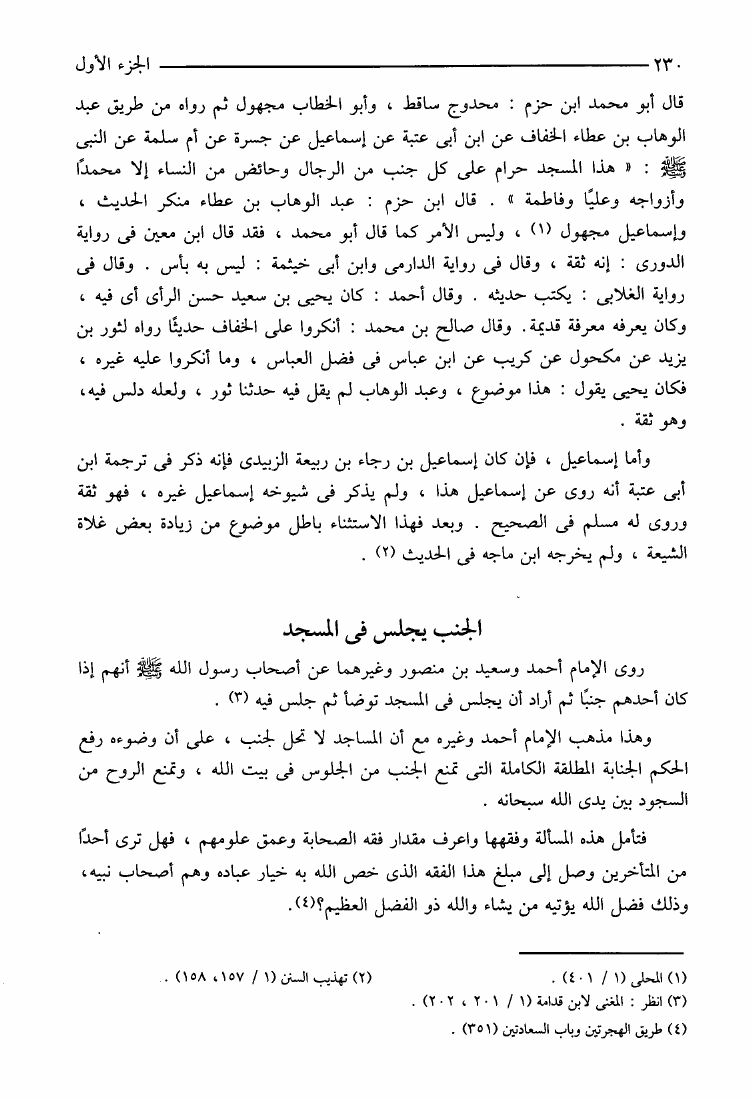 ٢٣٠ ــــــــــــــــــــــــــــــــــــــــــــــــــــ الجزء الأول
قال أبو محمد ابن حزم : محدوج ساقط ، وأبو الخطاب مجهول ثم رواه من طريق عبد
الوهاب بن عطاء الخفاف عن ابن أبى عتبة عن إسماعيل عن جسرة عن أم سلمة عن النبى
ﷺ : « هذا المسجد حرام على كل جنب من الرجال وحائض من النساء إلا محمدًا
وأزواجه وعليًا وفاطمة » . قال ابن حزم : عبد الوهاب بن عطاء منكر الحديث ،
وإسماعيل مجهول (١) ، وليس الأمر كما قال أبو محمد ، فقد قال ابن معين فى رواية
الدورى : إنه ثقة ، وقال فى رواية الدارمى وابن أبى خيثمة : ليس به بأس . وقال فى
رواية الغلابى : يكتب حديثه . وقال أحمد : كان يحيى بن سعيد حسن الرأى أى فيه ،
وكان يعرفه معرفة قديمة. وقال صالح بن محمد : أنكروا على الخفاف حديثًا رواه لثور بن
يزيد عن مكحول عن كريب عن ابن عباس فى فضل العباس ، وما أنكروا عليه غيره ،
فكان يحيى يقول : هذا موضوع ، وعبد الوهاب لم يقل فيه حدثنا ثور ، ولعله دلس فيه،
وهو ثقة .
وأما إسماعيل ، فإن كان إسماعيل بن رجاء بن ربيعة الزبيدى فإنه ذكر فى ترجمة ابن
أبى عتبة أنه روى عن إسماعيل هذا ، ولم يذكر فى شيوخه إسماعيل غيره ، فهو ثقة
وروى له مسلم فى الصحيح . وبعد فهذا الاستثناء باطل موضوع من زيادة بعض غلاة
الشيعة ، ولم يخرجه ابن ماجه فى الحديث (٢) .
الجنب يجلس فى المسجد
روى الإمام أحمد وسعيد بن منصور وغيرهما عن أصحاب رسول الله ﷺ أنهم إذا
كان أحدهم جنبًا ثم أراد أن يجلس فى المسجد توضأ ثم جلس فيه (٣) .
وهذا مذهب الإمام أحمد وغيره مع أن المساجد لا تحل لجنب ، على أن وضوءه رفع
الحكم الجنابة المطلقة الكاملة التى تمنع الجنب من الجلوس فى بيت الله ، وتمنع الروح من
السجود بين يدى الله سبحانه .
فتأمل هذه المسألة وفقهها واعرف مقدار فقه الصحابة وعمق علومهم ، فهل ترى أحدًا
من المتأخرين وصل إلى مبلغ هذا الفقه الذى خص الله به خيار عباده وهم أصحاب نبيه،
وذلك فضل الله يؤتيه من يشاء والله ذو الفضل العظيم؟(٤).
(١) المحلى (١ / ٤٠١) . (٢) تهذيب السنن (١ / ١٥٧، ١٥٨) .
(٣) انظر : المغنى لابن قدامة (١ / ٢٠١ ، ٢٠٢) .
(٤) طريق الهجرتين وباب السعادتين (٣٥١) .